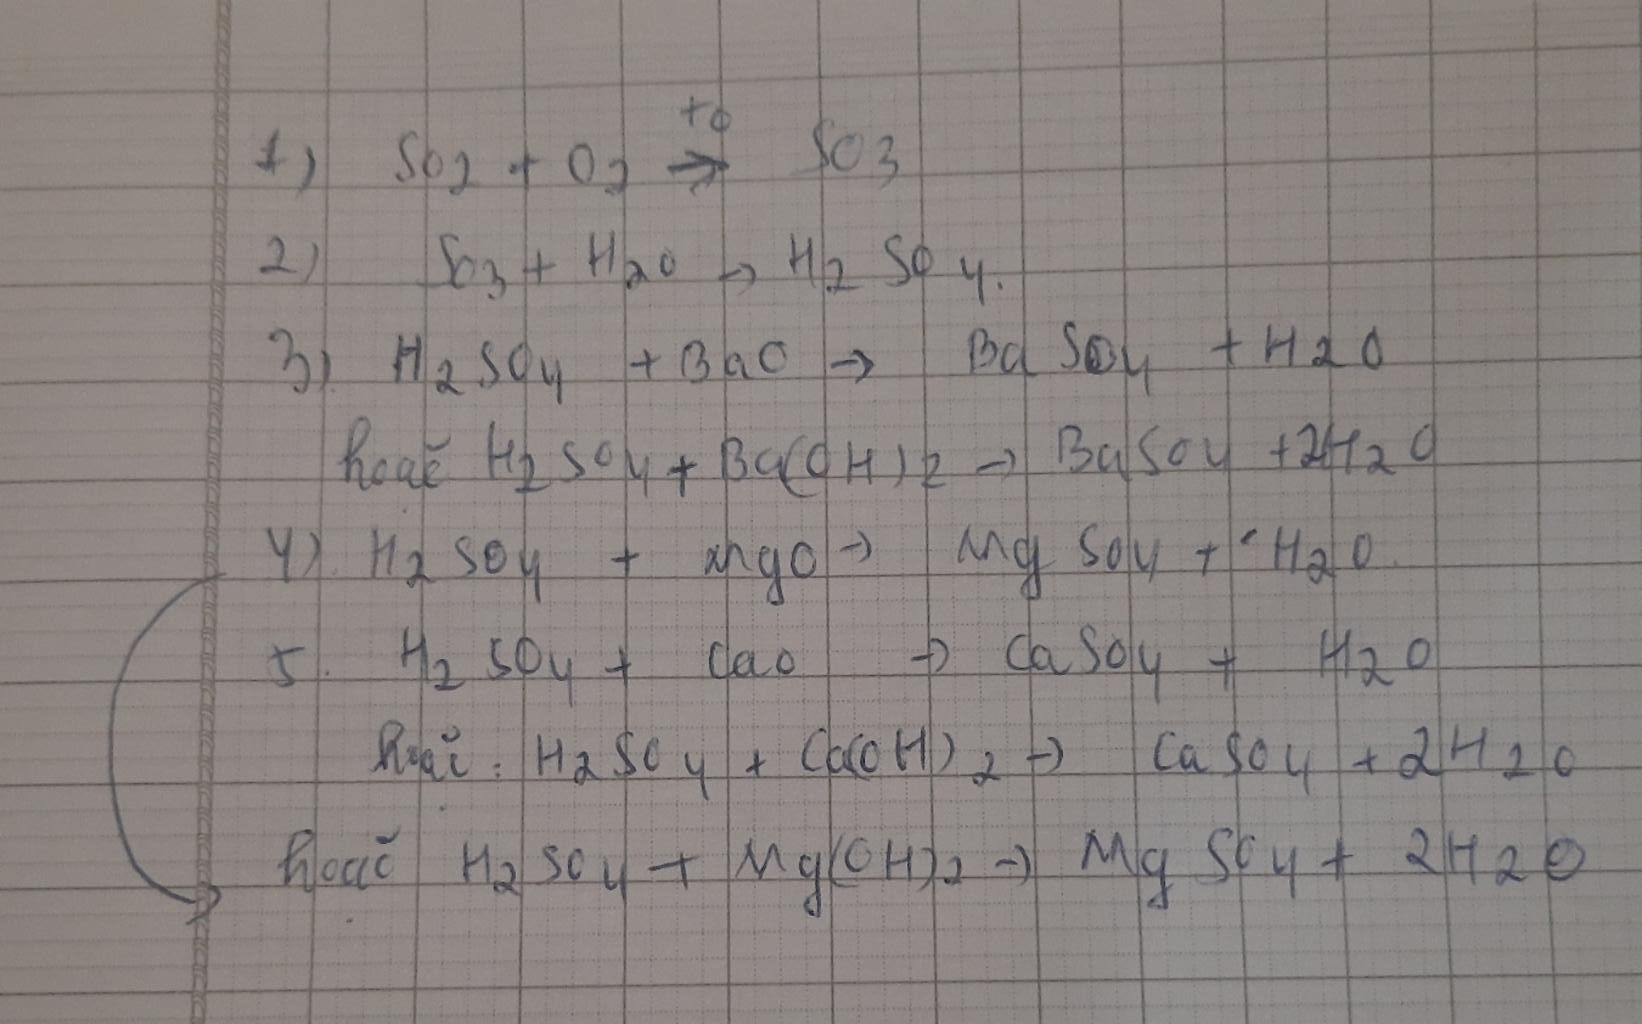 1) SO2 + O2 →(to) SO3
2) SO3 + H2O → H2SO4.
3) H2SO4 + BaO → BaSO4 + H2O
hoặc H2SO4 + Ba(OH)2 → BaSO4 + 2H2O
4) H2SO4 + MgO → MgSO4 + H2O.
5. H2SO4 + CaO → CaSO4 + H2O
hoặc: H2SO4 + Ca(OH)2 → CaSO4 + 2H2O
hoặc H2SO4 + Mg(OH)2 → MgSO4 + 2H2O